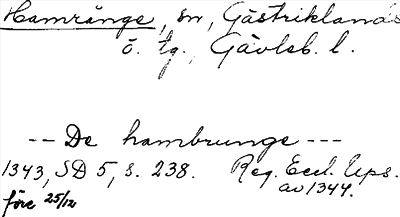 Hamrånge, sn, Gästriklands
ö. tg., Gävleb. l.
-- De hambrunge ---
1343, SD 5, s. 238. Reg. Eccl. Ups.
före 25/12 av 1344.